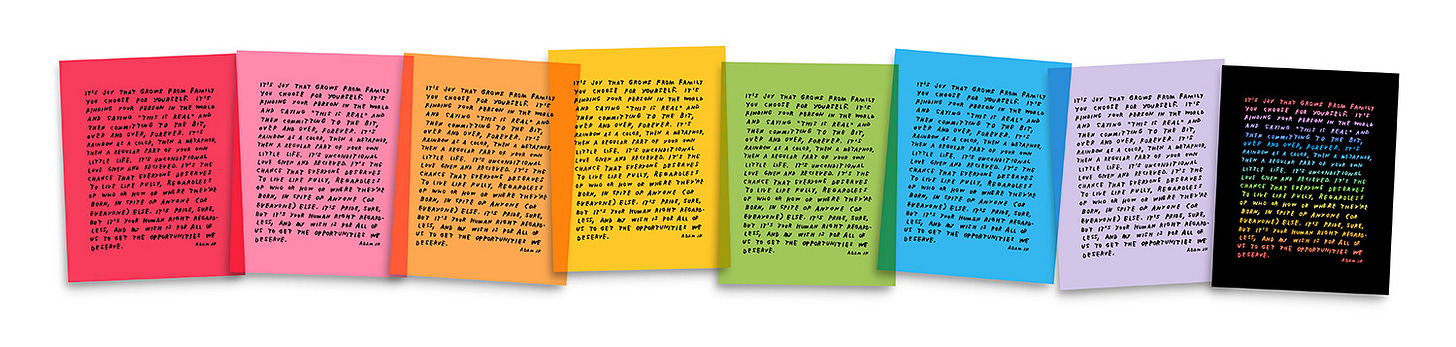 IT'S JOY THAT GROWS FROM FAMILY
YOU CHOOSE FOR YOURSELF. IT'S
FINDING YOUR PERSON IN THE WORLD
AND SAYING "THIS IS REAL" AND
THEN COMMITTING TO THE BIT,
OVER AND OVER, FOREVER. IT'S
RAINBOW AS A COLOR, THEN A METAPHOR,
THEN A REGULAR PART OF YOUR OWN
LITTLE LIFE. IT'S UNCONDITIONAL
LOVE GIVEN AND RECIEVED. IT'S THE
CHANCE THAT EVERYONE DESERVES
TO LIVE LIFE FULLY, REGARDLESS
OF WHO OR HOW OR WHERE THEY'RE
BORN, IN SPITE OF ANYONE (OR
EVERYONE) ELSE. IT'S PRIDE, SURE,
BUT IT'S YOUR HUMAN RIGHT REGARD-
LESS, AND MY WISH IS FOR ALL OF
US TO GET THE OPPORTUNITIES WE
DESERVE.
ADAM JK
IT'S JOY THAT GROWS FROM FAMILY
YOU CHOOSE FOR YOURSELF. IT'S
FINDING YOUR PERSON IN THE WORLD
AND SAYING "THIS IS REAL" AND
THEN COMMITTING TO THE BIT,
OVER AND OVER, FOREVER. IT'S
RAINBOW AS A COLOR, THEN A METAPHOR,
THEN A REGULAR PART OF YOUR OWN
LITTLE LIFE. IT'S UNCONDITIONAL
LOVE GIVEN AND RECIEVED. IT'S THE
CHANCE THAT EVERYONE DESERVES
TO LIVE LIFE FULLY, REGARDLESS
OF WHO OR HOW OR WHERE THEY'RE
BORN, IN SPITE OF ANYONE (OR
EVERYONE) ELSE. IT'S PRIDE, SURE,
BUT IT'S YOUR HUMAN RIGHT REGARD-
LESS, AND MY WISH IS FOR ALL OF
US TO GET THE OPPORTUNITIES WE
DESERVE.
ADAM JK
IT'S JOY THAT GROWS FROM FAMILY
YOU CHOOSE FOR YOURSELF. IT'S
FINDING YOUR PERSON IN THE WORLD
AND SAYING "THIS IS REAL" AND
THEN COMMITTING TO THE BIT,
OVER AND OVER, FOREVER. IT'S
RAINBOW AS A COLOR, THEN A METAPHOR,
THEN A REGULAR PART OF YOUR OWN
LITTLE LIFE. IT'S UNCONDITIONAL
LOVE GIVEN AND RECIEVED. IT'S THE
CHANCE THAT EVERYONE DESERVES
TO LIVE LIFE FULLY, REGARDLESS
OF WHO OR HOW OR WHERE THEY'RE
BORN, IN SPITE OF ANYONE (OR
EVERYONE) ELSE. IT'S PRIDE, SURE,
BUT IT'S YOUR HUMAN RIGHT REGARD-
LESS, AND MY WISH IS FOR ALL OF
US TO GET THE OPPORTUNITIES WE
DESERVE.
ADAM JK
IT'S JOY THAT GROWS FROM FAMILY
YOU CHOOSE FOR YOURSELF. IT'S
FINDING YOUR PERSON IN THE WORLD
AND SAYING "THIS IS REAL" AND
THEN COMMITTING TO THE BIT,
OVER AND OVER, FOREVER. IT'S
RAINBOW AS A COLOR, THEN A METAPHOR,
THEN A REGULAR PART OF YOUR OWN
LITTLE LIFE. IT'S UNCONDITIONAL
LOVE GIVEN AND RECIEVED. IT'S THE
CHANCE THAT EVERYONE DESERVES
TO LIVE LIFE FULLY, REGARDLESS
OF WHO OR HOW OR WHERE THEY'RE
BORN, IN SPITE OF ANYONE (OR
EVERYONE) ELSE. IT'S PRIDE, SURE,
BUT IT'S YOUR HUMAN RIGHT REGARD-
LESS, AND MY WISH IS FOR ALL OF
US TO GET THE OPPORTUNITIES WE
DESERVE.
ADAM JK
IT'S JOY THAT GROWS FROM FAMILY
YOU CHOOSE FOR YOURSELF. IT'S
FINDING YOUR PERSON IN THE WORLD
AND SAYING "THIS IS REAL" AND
THEN COMMITTING TO THE BIT,
OVER AND OVER, FOREVER. IT'S
RAINBOW AS A COLOR, THEN A METAPHOR,
THEN A REGULAR PART OF YOUR OWN
LITTLE LIFE. IT'S UNCONDITIONAL
LOVE GIVEN AND RECIEVED. IT'S THE
CHANCE THAT EVERYONE DESERVES
TO LIVE LIFE FULLY, REGARDLESS
OF WHO OR HOW OR WHERE THEY'RE
BORN, IN SPITE OF ANYONE (OR
EVERYONE) ELSE. IT'S PRIDE, SURE,
BUT IT'S YOUR HUMAN RIGHT REGARD-
LESS, AND MY WISH IS FOR ALL OF
US TO GET THE OPPORTUNITIES WE
DESERVE.
ADAM JK
IT'S JOY THAT GROWS FROM FAMILY
YOU CHOOSE FOR YOURSELF. IT'S
FINDING YOUR PERSON IN THE WORLD
AND SAYING "THIS IS REAL" AND
THEN COMMITTING TO THE BIT,
OVER AND OVER, FOREVER. IT'S
RAINBOW AS A COLOR, THEN A METAPHOR,
THEN A REGULAR PART OF YOUR OWN
LITTLE LIFE. IT'S UNCONDITIONAL
LOVE GIVEN AND RECIEVED. IT'S THE
CHANCE THAT EVERYONE DESERVES
TO LIVE LIFE FULLY, REGARDLESS
OF WHO OR HOW OR WHERE THEY'RE
BORN, IN SPITE OF ANYONE (OR
EVERYONE) ELSE. IT'S PRIDE, SURE,
BUT IT'S YOUR HUMAN RIGHT REGARD-
LESS, AND MY WISH IS FOR ALL OF
US TO GET THE OPPORTUNITIES WE
DESERVE.
ADAM JK
IT'S JOY THAT GROWS FROM FAMILY
YOU CHOOSE FOR YOURSELF. IT'S
FINDING YOUR PERSON IN THE WORLD
AND SAYING "THIS IS REAL" AND
THEN COMMITTING TO THE BIT,
OVER AND OVER, FOREVER. IT'S
RAINBOW AS A COLOR, THEN A METAPHOR,
THEN A REGULAR PART OF YOUR OWN
LITTLE LIFE. IT'S UNCONDITIONAL
LOVE GIVEN AND RECIEVED. IT'S THE
CHANCE THAT EVERYONE DESERVES
TO LIVE LIFE FULLY, REGARDLESS
OF WHO OR HOW OR WHERE THEY'RE
BORN, IN SPITE OF ANYONE (OR
EVERYONE) ELSE. IT'S PRIDE, SURE,
BUT IT'S YOUR HUMAN RIGHT REGARD-
LESS, AND MY WISH IS FOR ALL OF
US TO GET THE OPPORTUNITIES WE
DESERVE.
ADAM JK
IT'S JOY THAT GROWS FROM FAMILY
YOU CHOOSE FOR YOURSELF. IT'S
FINDING YOUR PERSON IN THE WORLD
AND SAYING "THIS IS REAL" AND
THEN COMMITTING TO THE BIT,
OVER AND OVER, FOREVER. IT'S
RAINBOW AS A COLOR, THEN A METAPHOR,
THEN A REGULAR PART OF YOUR OWN
LITTLE LIFE. IT'S UNCONDITIONAL
LOVE GIVEN AND RECIEVED. IT'S THE
CHANCE THAT EVERYONE DESERVES
TO LIVE LIFE FULLY, REGARDLESS
OF WHO OR HOW OR WHERE THEY'RE
BORN, IN SPITE OF ANYONE (OR
EVERYONE) ELSE. IT'S PRIDE, SURE,
BUT IT'S YOUR HUMAN RIGHT REGARD-
LESS, AND MY WISH IS FOR ALL OF
US TO GET THE OPPORTUNITIES WE
DESERVE.
ADAM JK